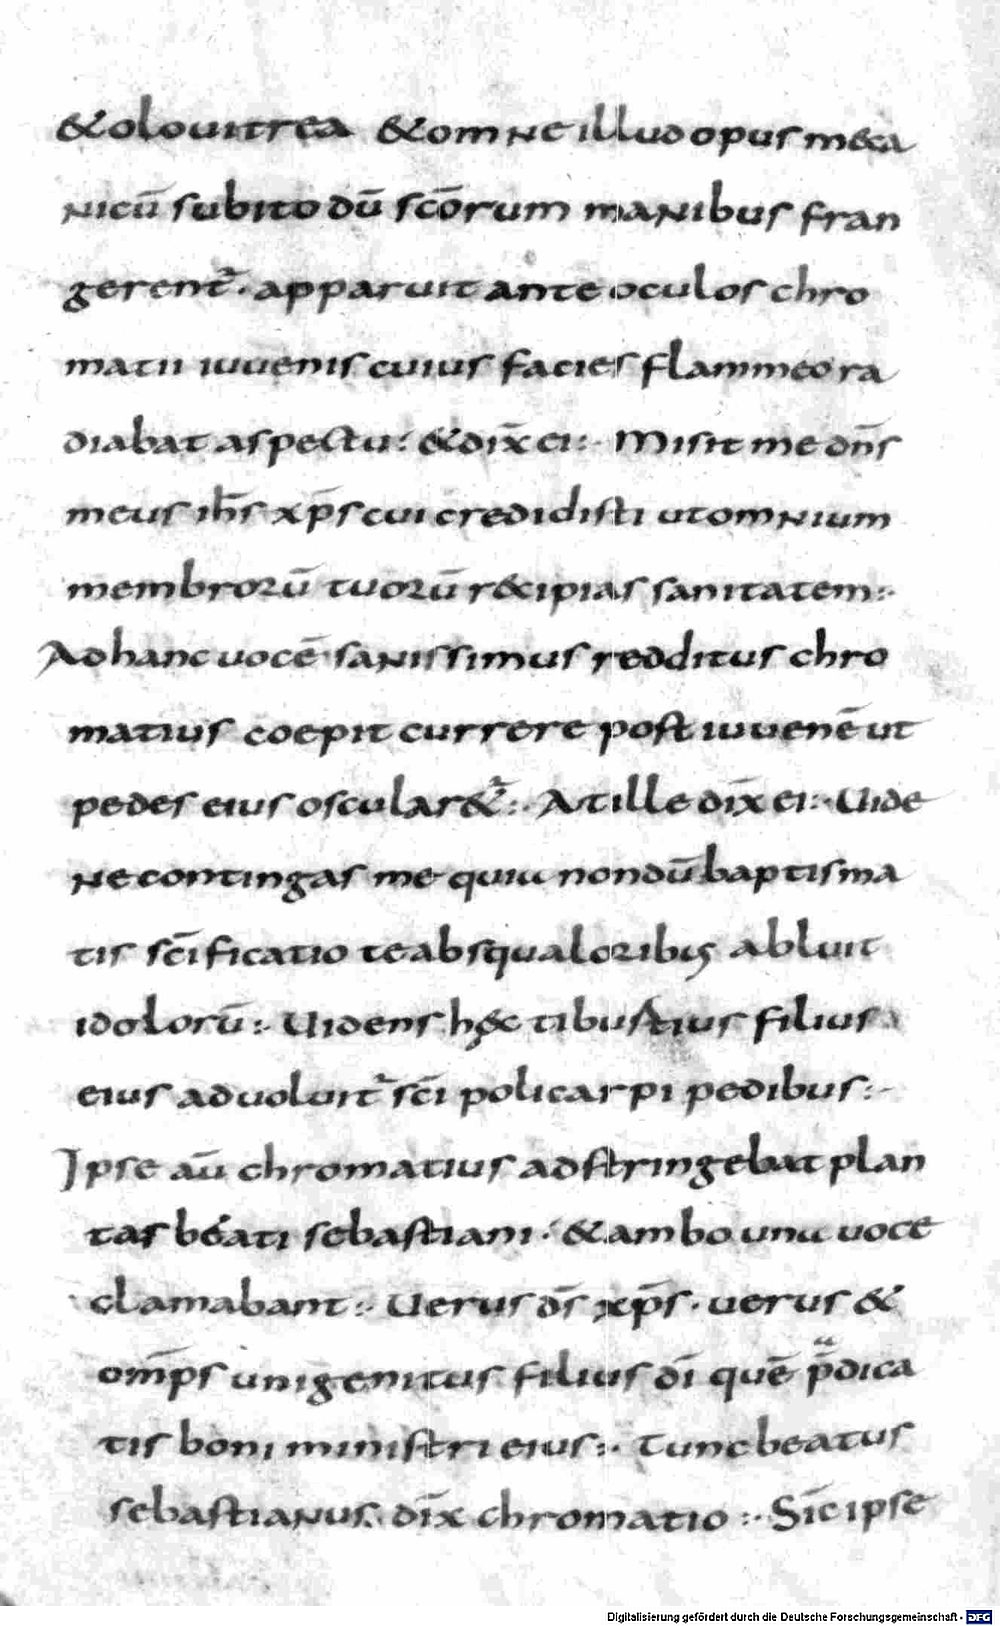 &olouitrea &omne illud opus mèca
nicū subito dū scōrum manibus fran
gerent̄. apparuit ante oculos chro
matii iuuenis cuius facies flammeo ra
diabat aspectu: &dix̄ ei:· Misit me dn̄s
meus ih̄s xp̄s cui credidisti ut omnium
membrorū tuorū r&cipias sanitatem:·
Ad hanc uocē sanissimus redditus chro
matius coepit currere post iuuenē ut
pedes eius oscular&̄:· At ille dix̄ ei:· Uide
ne contingas me quiu nondū baptisma
tis scīficatio te ab squaloribus abluit
idolorū:· Uidens hęc tibustius filius
eius aduoluit̄ sc̄i policarpi pedibus:·
Ipse aū chromatius adstringebat plan
tas beati sebastiani·' &ambo unu uoce
clamabant:· Uerus ds̄ xp̄s. uerus &
om̄ps unigenitus filius dī quē p̄dica
tis boni ministri eius:· Tunc beatus
sebastianus. dix̄ chromatio:· Sic ipse
Digitalisierung gefördert durch die Deutsche Forschungsgemeinschaft - DFG